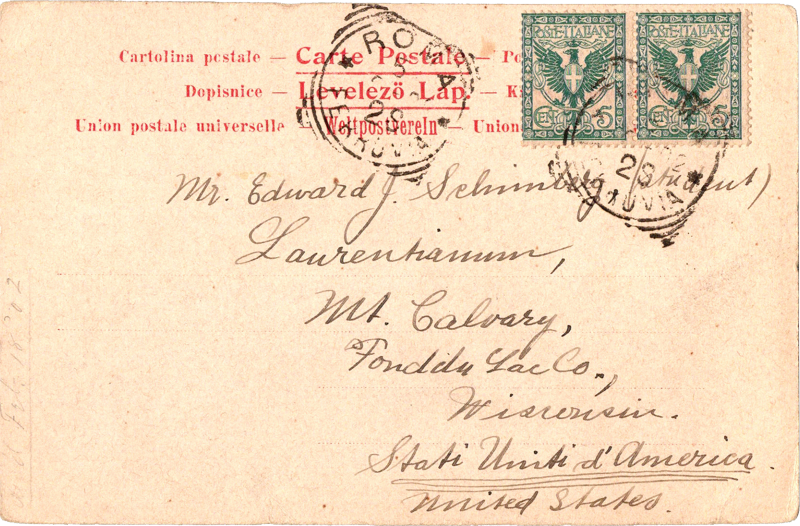 Cartolina postale — Carte Postale —
Dopisnice — Levelező Lap. —
Union postale universelle — Weltpostverein — Union
POSTE·ITALIANE POSTE·ITALIANE
CENT 5 CENT 5
ROMA
28
FERROVIA
28
Mr. Edward J. (student)
Laurentianum,
Mt. Calvary,
Fond du Lac Co.,
Wisconsin.
Stati Uniti d'America.
United States.